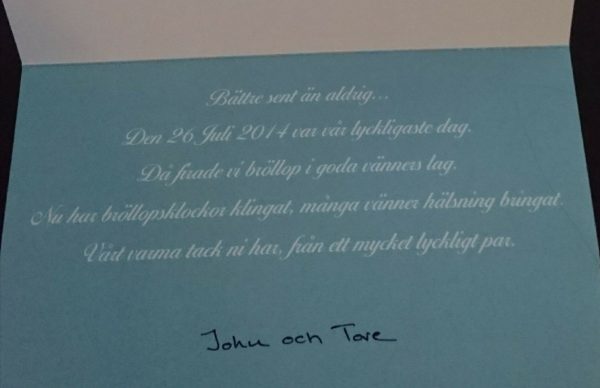 Bättre sent än aldrig...
Den 26 Juli 2014 var vår lyckligaste dag.
Då firade vi bröllop i goda vänners lag.
Nu har bröllopsklockor klingat, många vänner hälsning bringat.
Vårt varma tack ni har, från ett mycket lyckligt par.
John och Tove